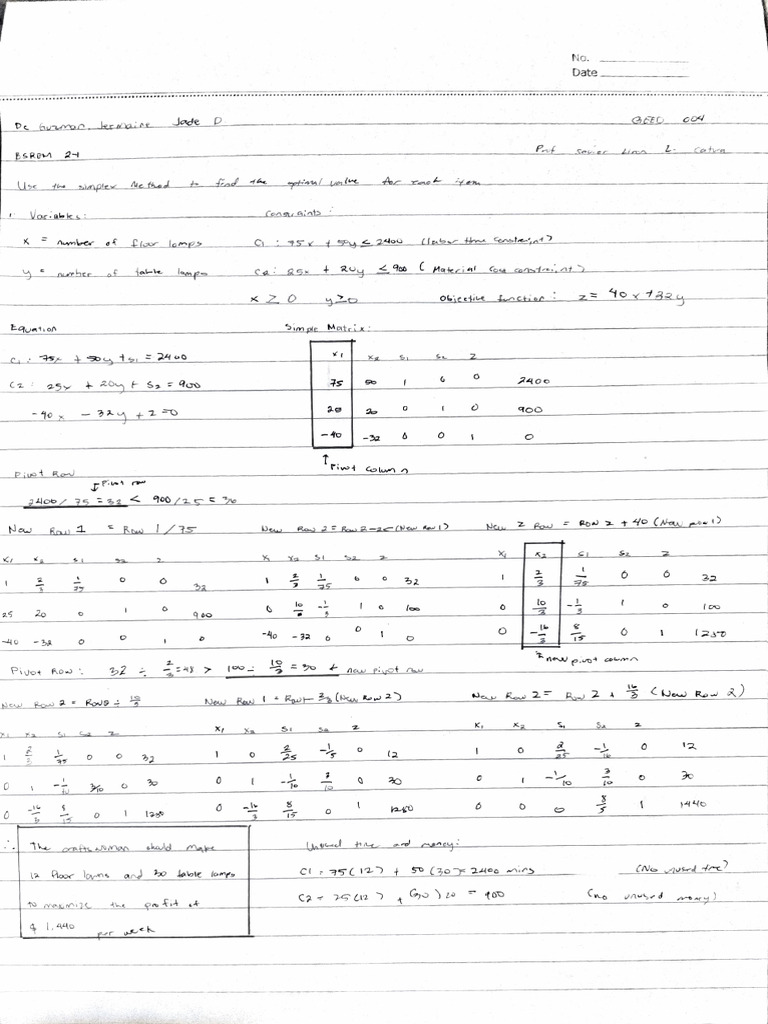 No.
Date
De Guzman, Jermaine Jade D. GEED 004
BSROM 2-1 Prof
Use the simplex Method to find the optimal value for each item
1. Variables: Constraints:
x = number of floor lamps C1: 75x + 50y ≤ 2400 (labor time constraint)
y = number of table lamps C2: 25x + 20y ≤ 900 (Material cost constraint)
x ≥ 0 y ≥ 0 Objective function: z = 40x + 32y
Equation Simple Matrix:
C1: 75x + 50y + s1 = 2400 x1 x2 s1 s2 z
C2: 25x + 20y + s2 = 900 75 50 1 0 0 2400
-40x - 32y + z = 0 20 20 0 1 0 900
-40 -32 0 0 1 0
↑ Pivot column
Pivot Row
↓ Pivot row
2400/75 = 32 < 900/25 = 36
New Row 1 = Row 1/75 New Row 2 = Row 2 - 25 (New Row 1) New Z Row = ROW Z + 40 (New row 1)
x1 x2 s1 s2 z x1 x2 s1 s2 z x1 x2 s1 s2 z
1 2/3 1/75 0 0 32 1 2/3 1/75 0 0 32 1 2/3 1/75 0 0 32
25 20 0 1 0 900 0 10/3 -1/3 1 0 100 0 10/3 -1/3 1 0 100
-40 -32 0 0 1 0 -40 -32 0 0 1 0 0 -16/3 8/15 0 1 1280
↑ new pivot column
Pivot Row: 32 ÷ 2/3 = 48 > 100 ÷ 10/3 = 30 ← new pivot row
New Row 2 = Row 2 ÷ 10/3 New Row 1 = Row 1 - 2/3 (New Row 2) New Row Z = Row Z + 16/3 (New Row 2)
x1 x2 s1 s2 z x1 x2 s1 s2 z x1 x2 s1 s2 z
1 2/3 1/75 0 0 32 1 0 2/25 -1/5 0 12 1 0 2/25 -1/10 0 12
0 1 -1/10 3/10 0 30 0 1 -1/10 3/10 0 30 0 1 -1/10 3/10 0 30
0 -16/3 8/15 0 1 1280 0 -16/3 8/15 0 1 1280 0 0 0 8/5 1 1440
∴ The craftswoman should make Unused time and money:
12 floor lamps and 30 table lamps C1 = 75(12) + 50(30) = 2400 mins (No unused time)
to maximize the profit of C2 = 25(12) + (30)20 = 900 (no unused money)
$ 1,440 per week